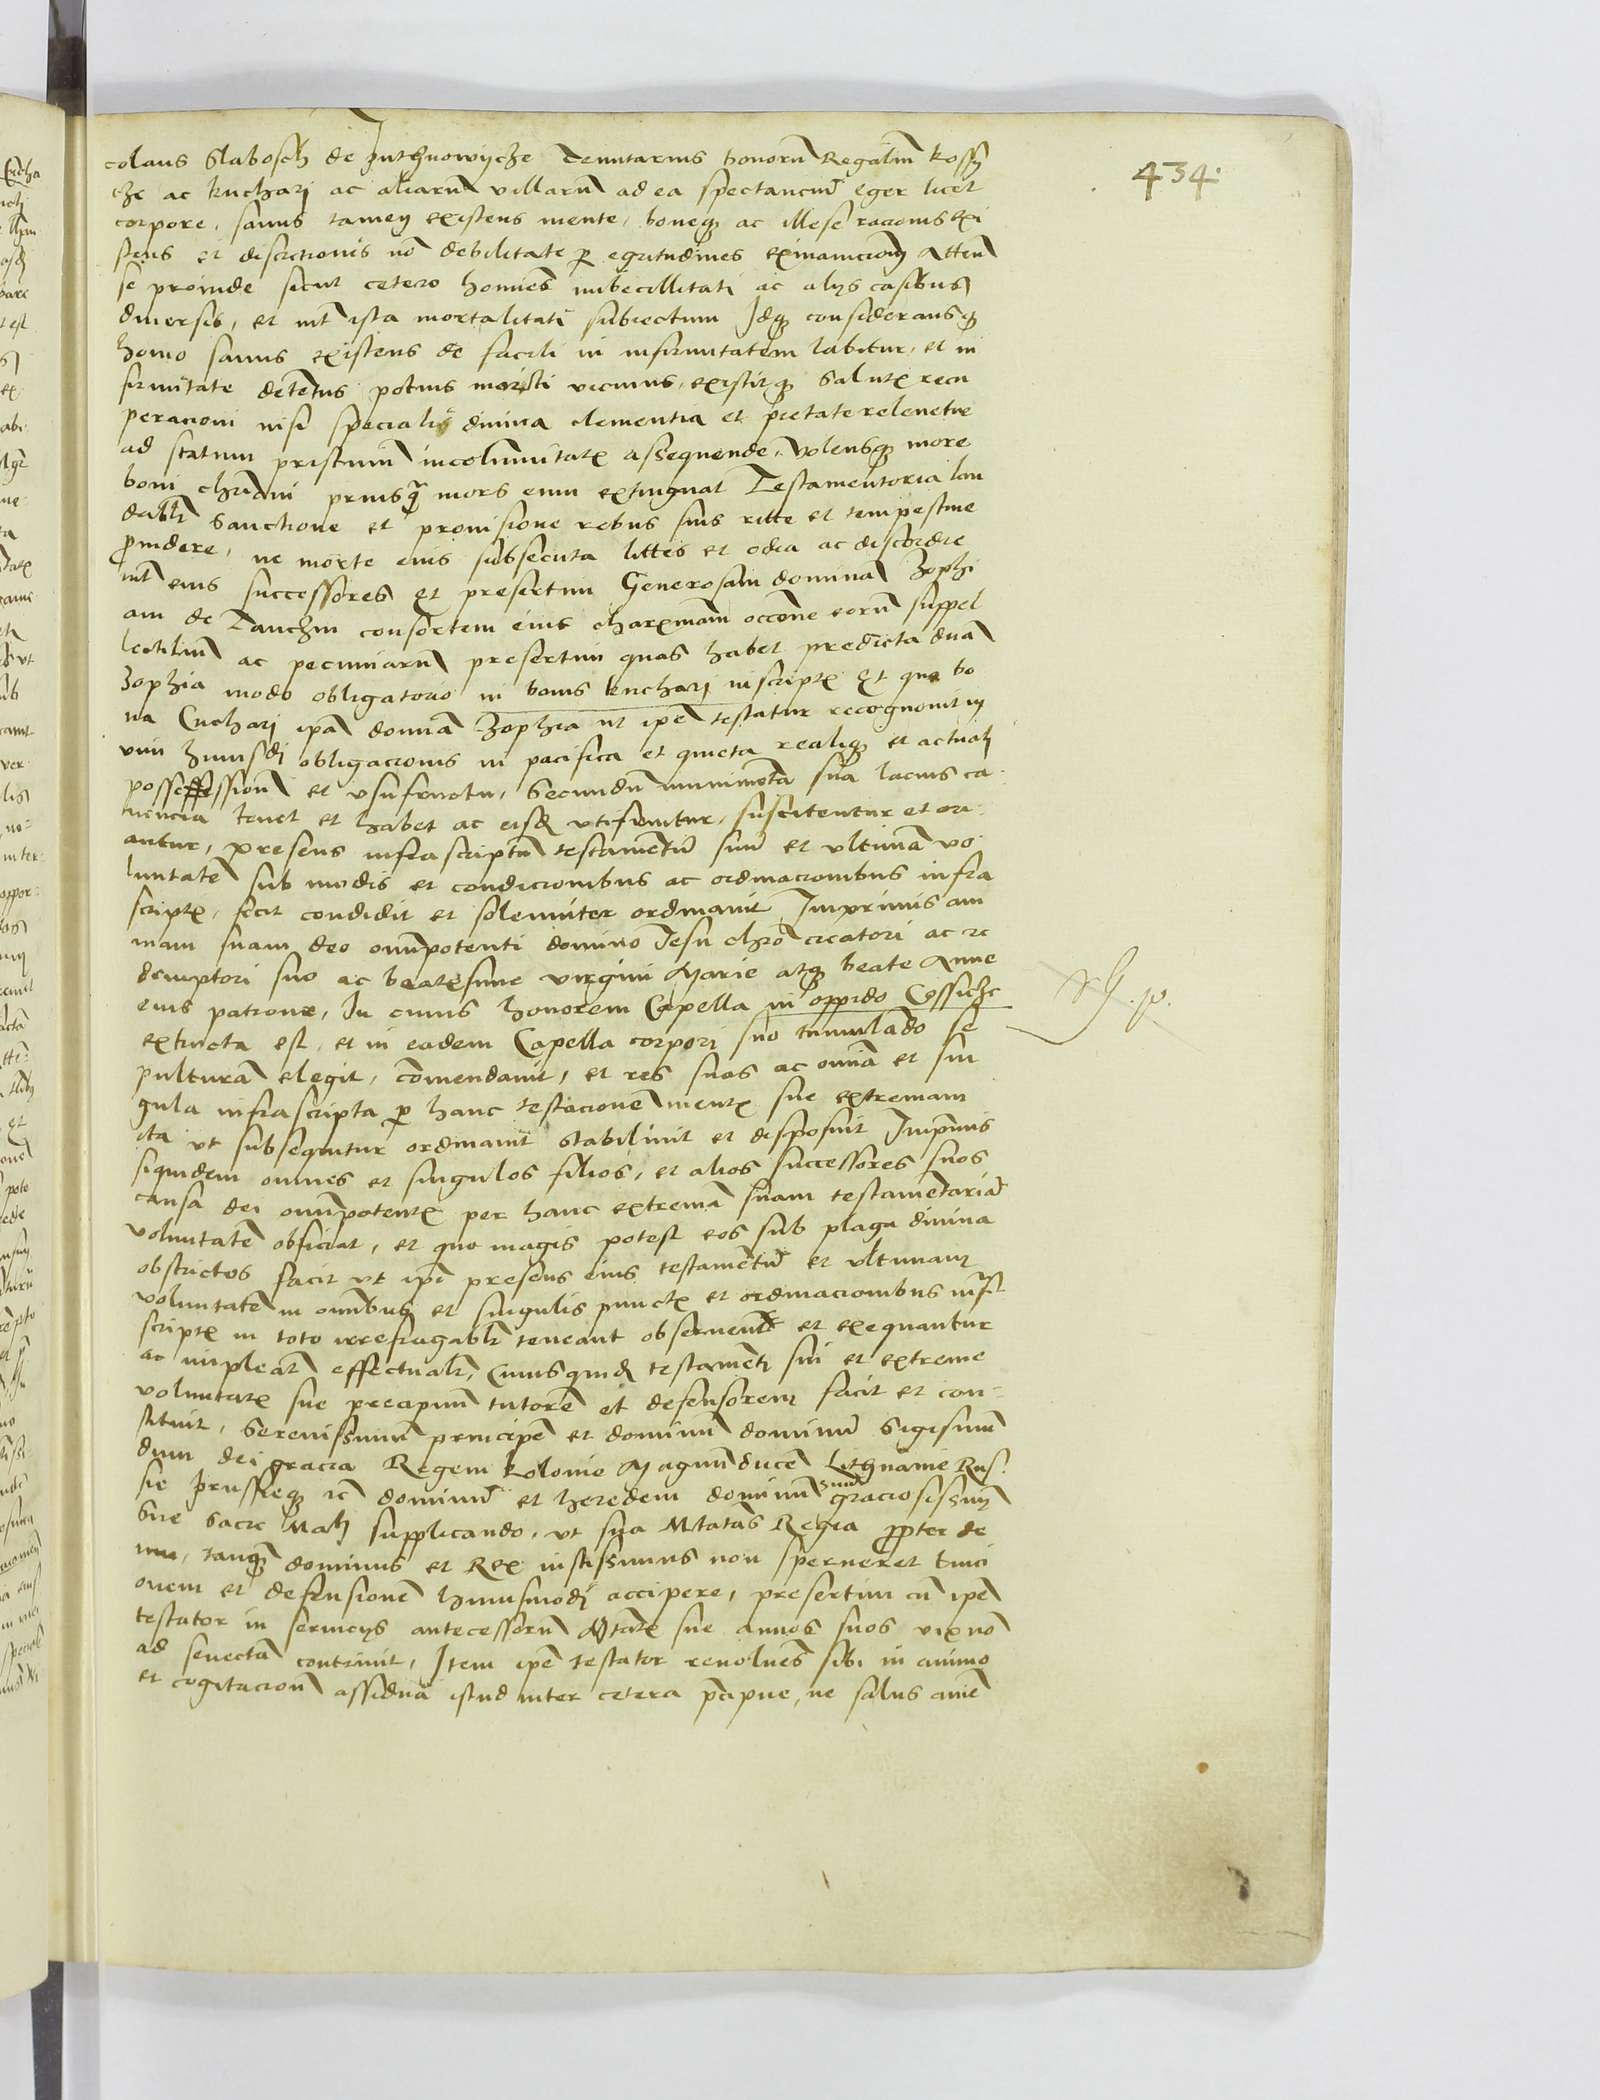 434.
colaus Slabosch de Juthrowijcze Tenutarius bonorũ Regaliũ Kossij
cze ac Kuchari ac aliarũ villarũ ad ea spectanciũ eger licet
corpore, sanus tamen existens mente, boneqȝ ac illese racionis Exi
stens et discretionis nõ debilitate ꝑ egritudines
se proinde sicut cetero homines imbecillitati ac alijs casibus
diuersis, et ista mortalitati subiectum Idqȝ consideransqȝ
homo sanus existens de facili in infirmitatem labitur, et in
firmitate detẽtus potius morti vicinus, existitqȝ salutꝭ recu
peracioni nisi speciali diuina clementia et pietate releuetur
ad statum pristinũ incolumitatꝭ assequende, volensqȝ more
boni chrīani priusqȝ mors eum extinguat Testamentoria lau
dabli Sanctione et prouisione rebus suis ritte et tempestiue
ꝓuidere, ne morte eius subsecuta littes et odia ac discordie
int eius successores et presertim Generosam dominã Zophi
am de Tanczin consortem eius charꝭmam occõne eorũ suppel
lectiliũ ac pecuniarũ presertim quas habet predicta dnã
Zophia modo obligatorio in bonis Kuchari inscriptꝭ Et que bo
na Cuchari ipã domĩã Zophia ut ipẽ testatur recognouit in
vim hmõi obligacionis in pacifica et quieta realiqȝ et actuali
possessionẽ et vsufructu, Secundũ munimẽta sua lacius ca
uencia tenet et habet ac eisd vtifruitur, suscitentur et ori
antur, presens infrascriptũ testamentũ suũ et vltimã vo
luntatẽ sub modis et condicionibus ac ordinacionibus infra
scriptꝭ, fecit condidit et solemniter ordinauit Imprimis ani
mam suam deo omĩpotenti domino Iesu chro creatori ac re
demptori suo ac beatissime virgini Marie atqȝ beate Anne
eius patrone, In cuius honorem Capella in oppido Cossicze
extructa est, et in eadem Capella corpori suo tumulãdo se
pulturã elegit, cõmendauit, et res suas ac omĩa et sin
gula infrascripta ꝑ hanc testacionẽ mentꝭ sue extremam
ita vt subsequitur ordinauit stabiliuit et disposuit Imprimis
siquidem omnes et singulos filios, et alios successores suos
causa dei omĩpotentꝭ per hanc extremã suam testamẽtariã
voluntatẽ obficiat, et quo magis potest eos sub plaga diuina
obstrictos facit vt ipĩ presens eius testamentũ et vltimam
voluntatẽ in omĩbus et singulis punctꝭ et ordinacionibus infra
scriptꝭ in toto irrefragabli teneant obseruent et exequantur
ac impleant effectualr, Cuiusquid testamẽti sui et extreme
voluntatꝭ sue precipuũ tutorẽ et defensorem facit et con
stituit, Serenissimũ principẽ et dominũ dominũ Sigismun
dum dei gracia Regem Polonie Magnũ ducẽ Lithuanie Rus
sie Prussieqȝ rc dominũ et heredem dominũ suũ graciosissimũ
Sue Sacre Mati supplicando, vt sua Mtatas Regia ꝓpter de
um, tanqȝ dominus et Rex iustissimus non sperneret tuici
onem et defensionẽ huiusmodi accipere, presertim cũ ipẽ
testator in seruicijs antecessorũ Mtatꝭ sue annos suos vixnõ
ad senectã contriuit, Item ipẽ testator reuoluẽs sibi in animo
et cogitacionẽ assiduã istud inter cetera pcipue, ne salus anie